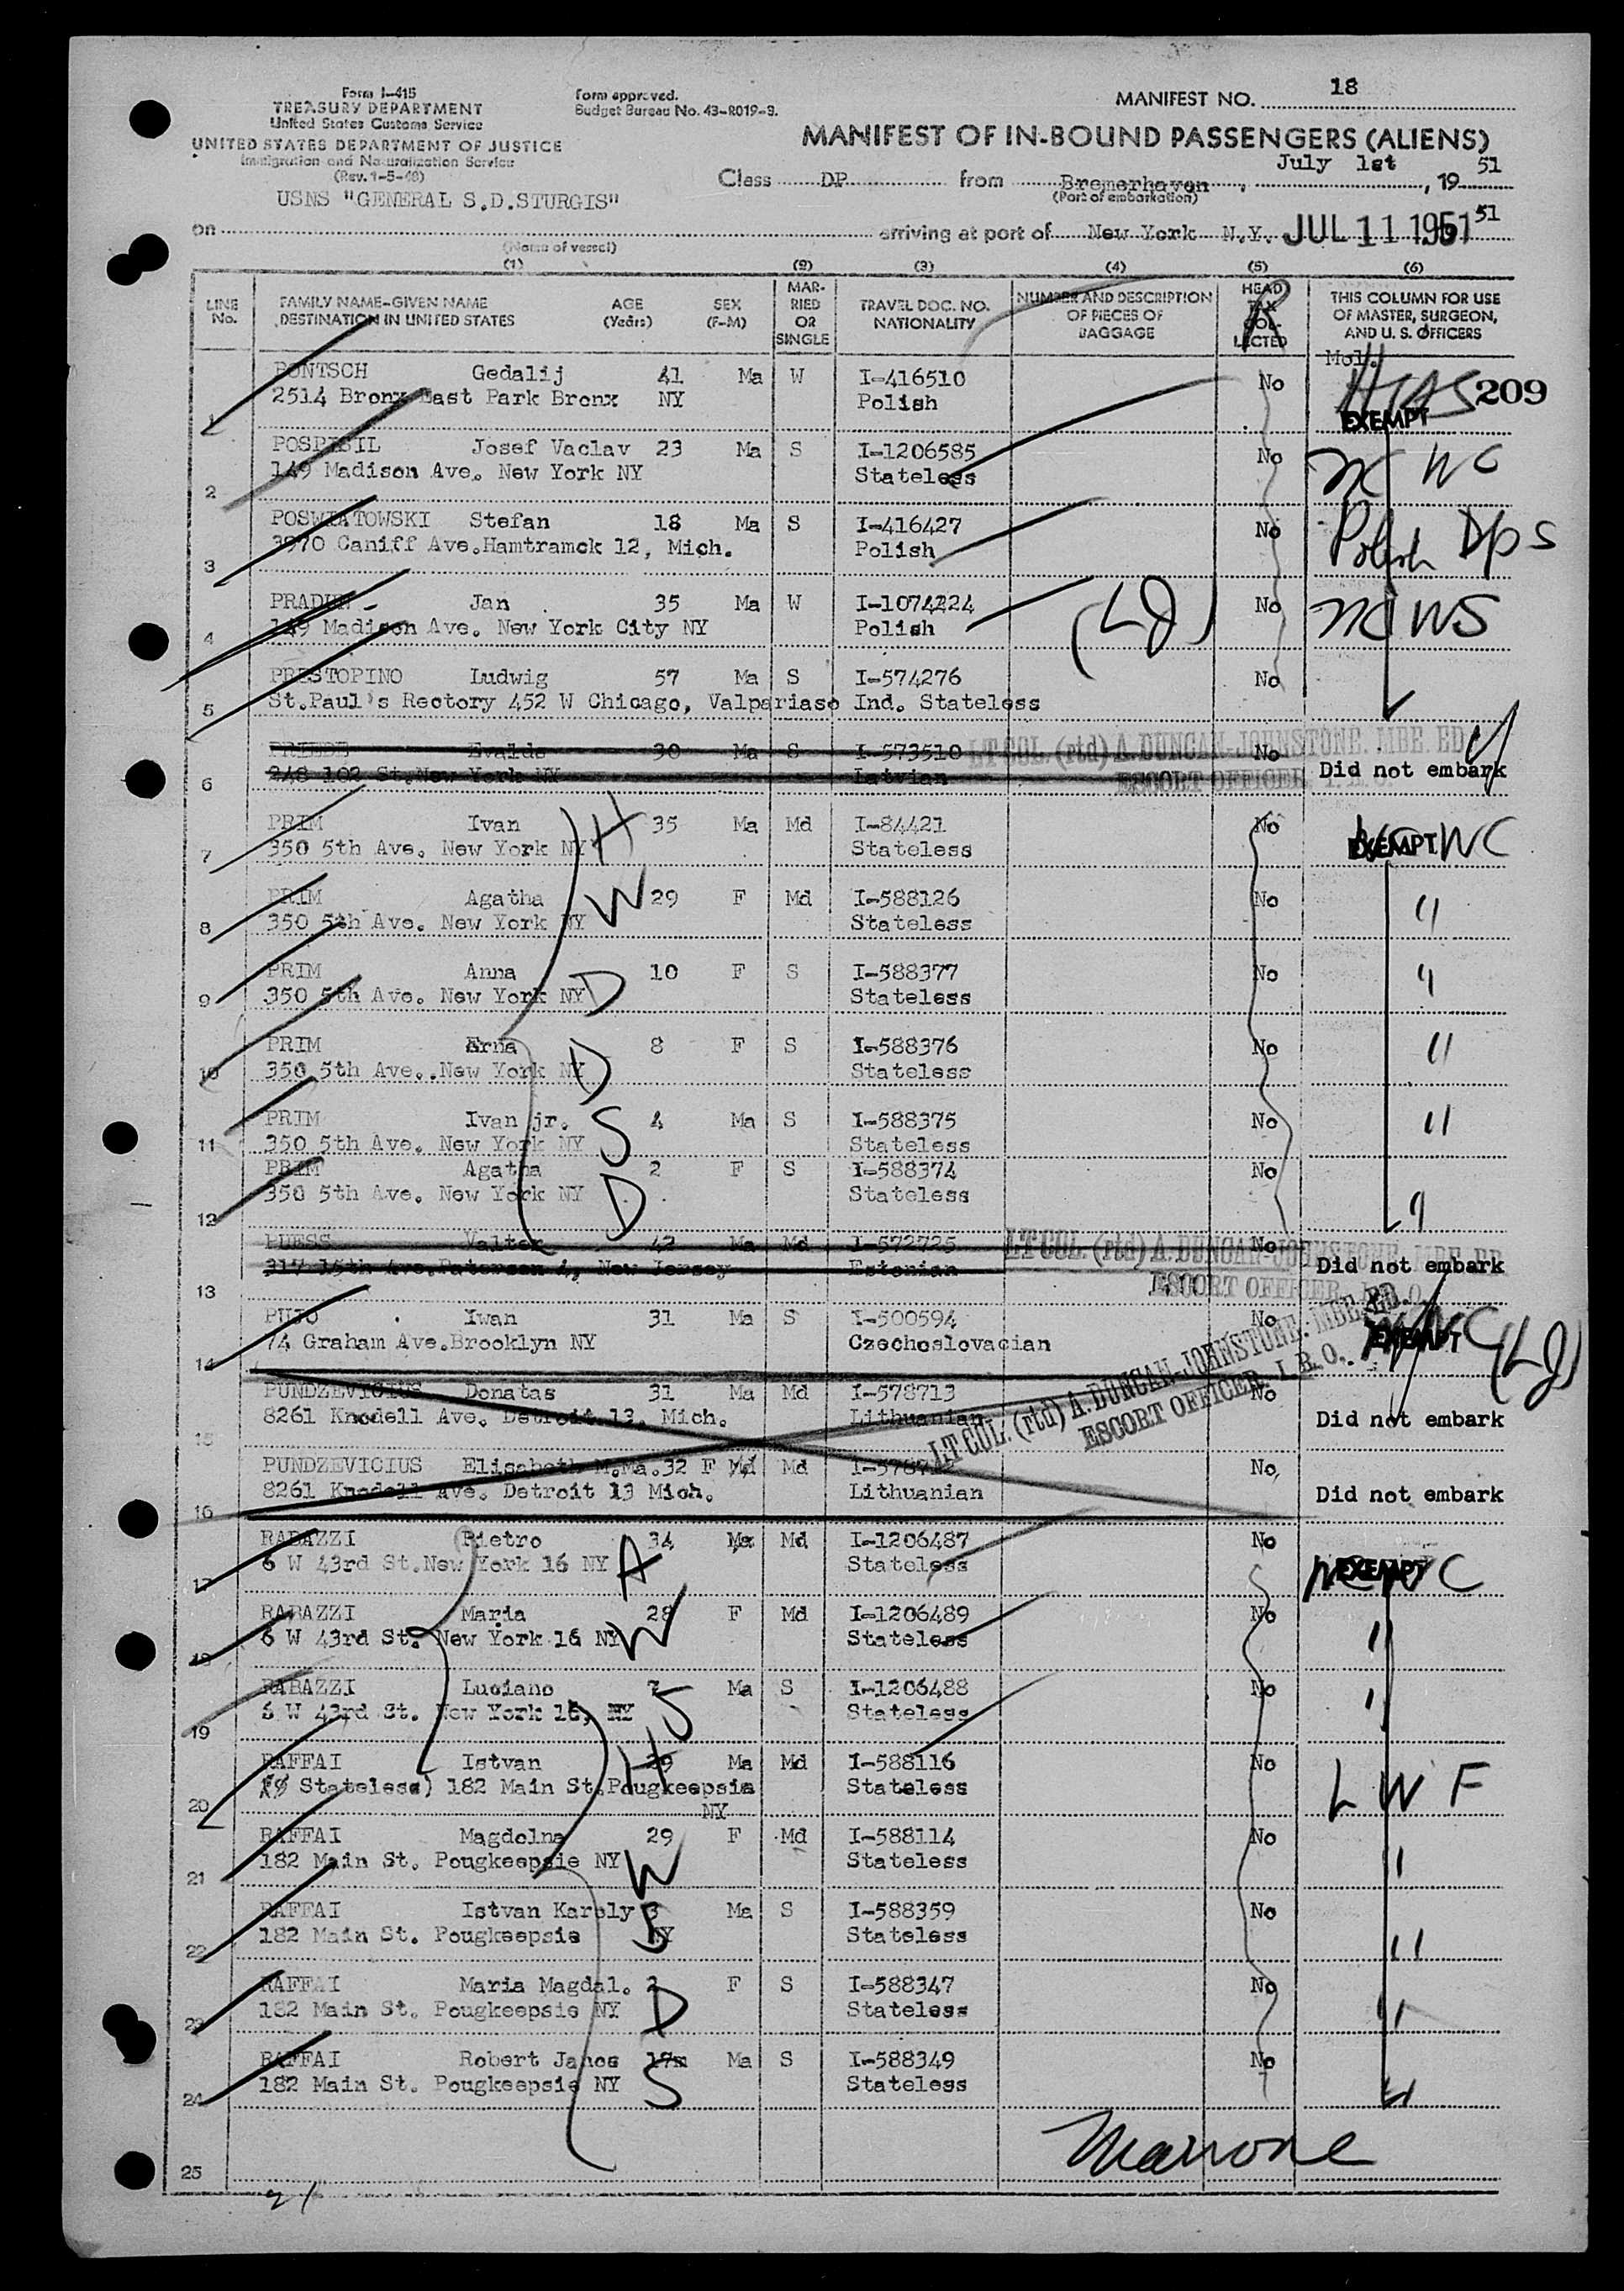 Form I-415
TREASURY DEPARTMENT
United States Customs Service
UNITED STATES DEPARTMENT OF JUSTICE
Immigration and Naturalization Service
(Rev. 1-5-48)
Form approved.
Budget Bureau No. 43-R019-3.
MANIFEST NO. 18
MANIFEST OF IN-BOUND PASSENGERS (ALIENS)
Class DP from Bremerhaven, July 1st, 19 51
(Port of embarkation)
USNS "GENERAL S.D.STURGIS"
on arriving at port of New York N.Y. JUL 11 1951 51
(Name of vessel)
(1) (2) (3) (4) (5) (6)
LINE No. FAMILY NAME-GIVEN NAME DESTINATION IN UNITED STATES AGE (Years) SEX (F-M) MARRIED OR SINGLE TRAVEL DOC. NO. NATIONALITY NUMBER AND DESCRIPTION OF PIECES OF BAGGAGE HEAD TAX COLLECTED THIS COLUMN FOR USE OF MASTER, SURGEON, AND U. S. OFFICERS
R
1 PONTSCH Gedalij 41 Ma W I-416510 No HIAS 209
2514 Bronx East Park Bronx NY Polish EXEMPT
2 POSPISIL Josef Vaclav 23 Ma S I-1206585 No NC WC
149 Madison Ave. New York NY Stateless
3 POSWIATOWSKI Stefan 18 Ma S I-416427 No Polish Dps
3970 Caniff Ave.Hamtramck 12, Mich. Polish
4 Jan 35 Ma W I-1074224 (LJ) No
149 Madison Ave. New York City NY Polish
5 PRESTOPINO Ludwig 57 Ma S I-574276 No
St.Paul's Rectory 452 W Chicago, Valpariaso Ind. Stateless
6 PRIEDE Evalds 30 Ma S I-573510 No Did not embark
248 102 St.New York NY Latvian
LT COL. (rtd) A. DUNCAN-JOHNSTONE. MBE. ED.
ESCORT OFFICER, I.R.O.
7 PRIM Ivan H 35 Ma Md I-84421 No EXEMPT WC
350 5th Ave. New York NY Stateless
8 PRIM Agatha W 29 F Md I-588126 No "
350 5th Ave. New York NY Stateless
9 PRIM Anna 10 F S I-588377 No "
350 5th Ave. New York NY D Stateless
10 PRIM Erna 8 F S I-588376 No "
350 5th Ave. New York NY D Stateless
11 PRIM Ivan jr. S 4 Ma S I-588375 No "
350 5th Ave. New York NY Stateless
12 PRIM Agatha 2 F S I-588374 No "
350 5th Ave. New York NY D Stateless
13 PUESS Valter 42 Ma Md I-572725 No Did not embark
317 15th Ave.Paterson 4, New Jersey Estonian
LT COL. (rtd) A. DUNCAN-JOHNSTONE. MBE. ED.
ESCORT OFFICER, I.R.O.
14 PUJO Iwan 31 Ma S I-500594 No EXEMPT (LJ)
74 Graham Ave.Brooklyn NY Czechoslovacian
15 PUNDZEVICIUS Donatas 31 Ma Md I-578713 No Did not embark
8261 Knodell Ave. Detroit 13, Mich. Lithuanian
LT COL. (rtd) A. DUNCAN-JOHNSTONE. MBE. ED.
ESCORT OFFICER, I.R.O.
16 PUNDZEVICIUS Elisabeth M.Ma. 32 F Md Md No Did not embark
8261 Knodell Ave. Detroit 13 Mich. Lithuanian
17 RABAZZI Pietro 34 Ma Md I-1206487 No EXEMPT
6 W 43rd St.New York 16 NY Stateless
18 RABAZZI Maria 28 F Md I-1206489 No "
6 W 43rd St. New York 16 NY W Stateless
19 RABAZZI Luciano 7 Ma S I-1206488 No "
6 W 43rd St. New York 16, NY S Stateless
20 RAFFAI Istvan 29 H Ma Md I-588116 No LWF
Stateless) 182 Main St.Pougkeepsie NY Stateless
21 RAFFAI Magdolna 29 F Md I-588114 No "
182 Main St. Pougkeepsie NY W Stateless
22 RAFFAI Istvan Karoly 3 Ma S I-588359 No "
182 Main St. Pougkeepsie NY S Stateless
23 RAFFAI Maria Magdal. 2 F S I-588347 No "
182 Main St. Pougkeepsie NY D Stateless
24 RAFFAI Robert Janos Ma S I-588349 No "
182 Main St. Pougkeepsie NY S Stateless
25
Marrone
21